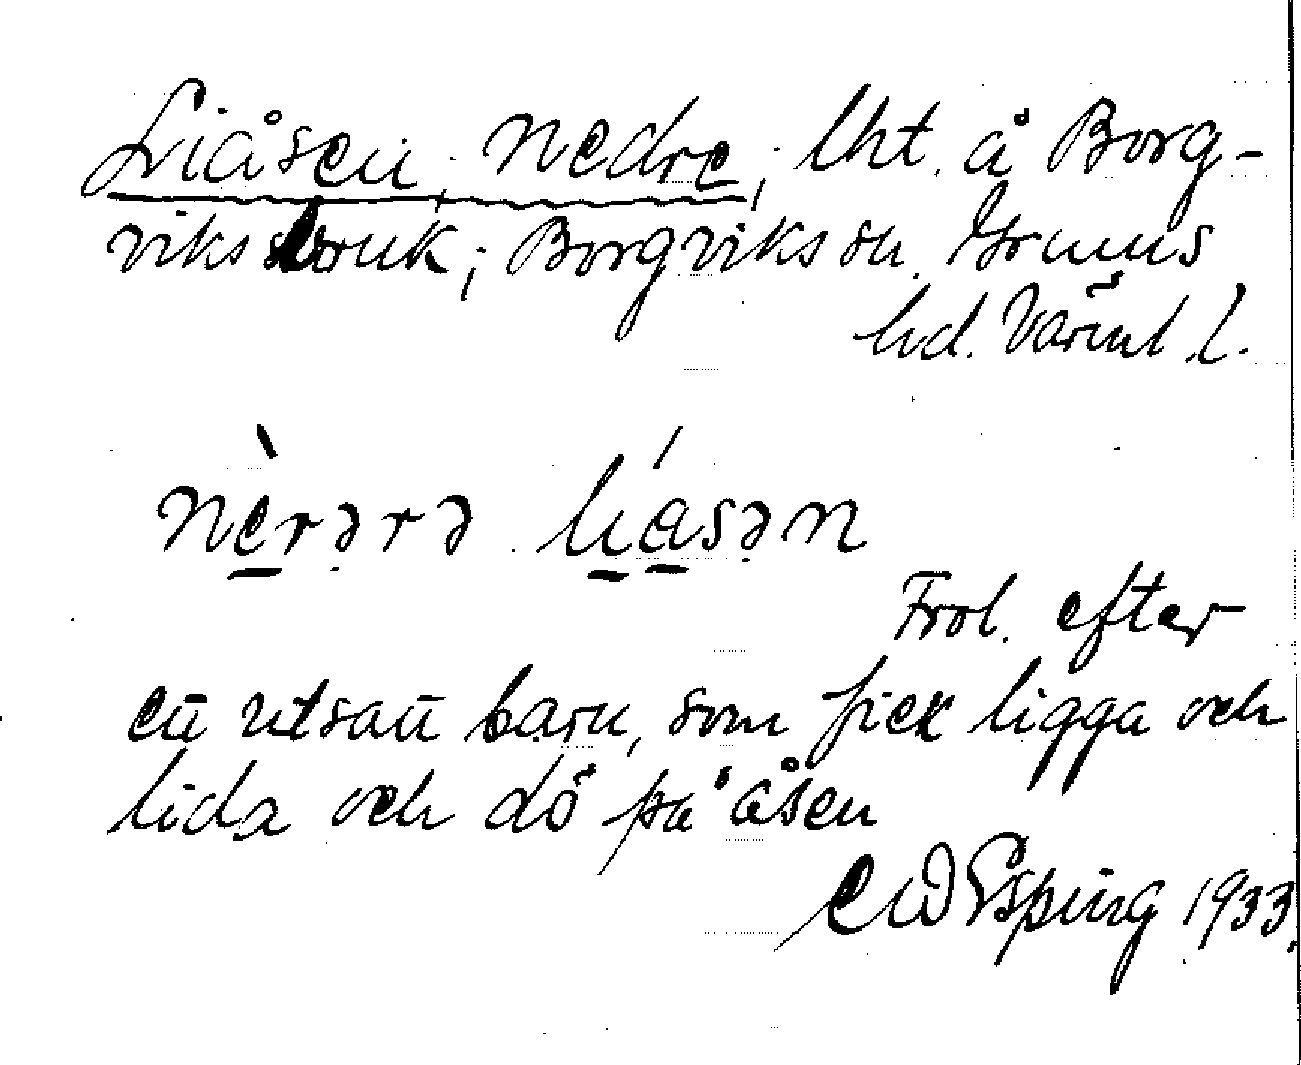 Liåsen, Nedre, lht. å Borg-
viks bruk; Borgviks sn. Grums
hd. Värml l.
nèrərə líasən
Frol. efter
en̄ utsatt barn, som fick ligga och
lida och dö på åsen
C W Esping 1933.